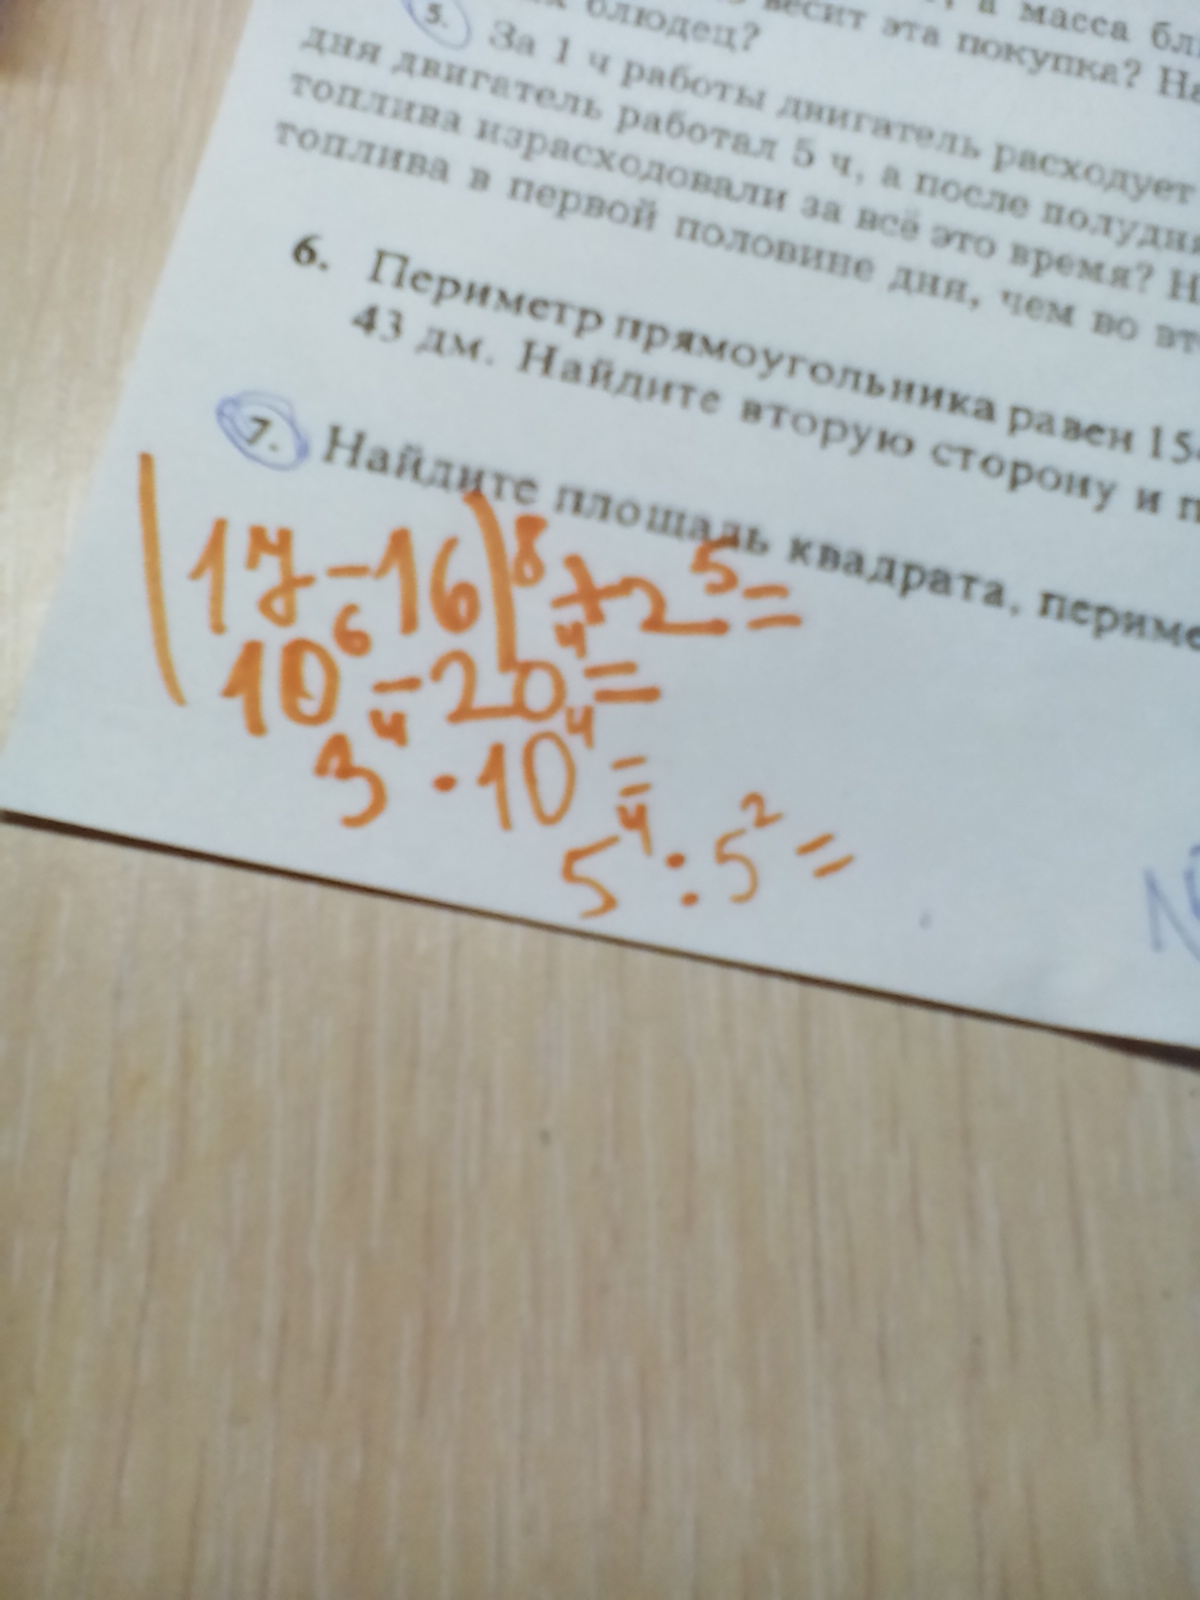 а масса
блюдец? весит эта покупка?
5. За 1 ч работы двигатель расходует
дня двигатель работал 5 ч, а после полудня
топлива израсходовали за всё это время?
топлива в первой половине дня, чем во
6. Периметр прямоугольника равен
43 дм. Найдите вторую сторону и
7. Найдите площадь квадрата,
(17-16)⁸+2⁵=
10⁶-20⁴=
3⁴·10⁴=
5⁴:5²=